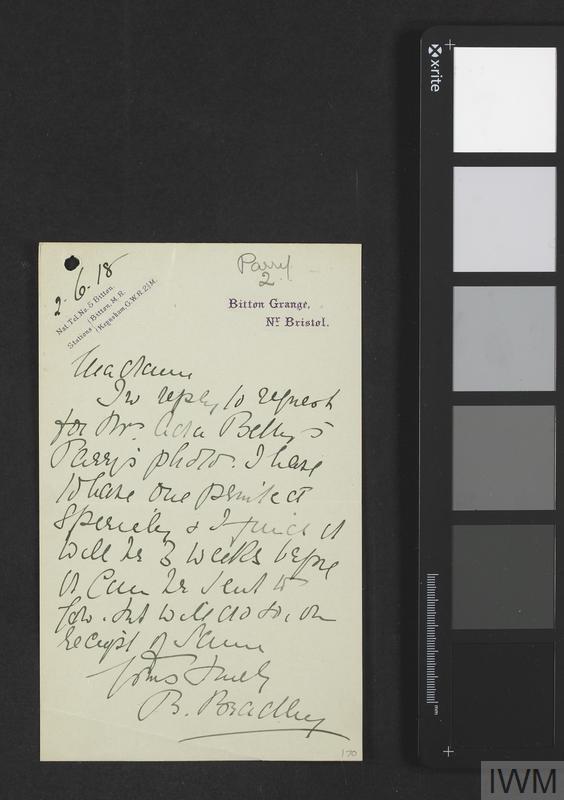 2.6.18
Nat. Tel. No. 5 Bitton.
Stations { Bitton, M.R.
Keynsham, G.W.R. 2½ M.
Parry
2
Bitton Grange,
Nr. Bristol.
Madam
In reply to request
for Mrs Betty's
Parry's photo. I have
to have one printed
specially & I find it
will be 3 weeks before
it can be sent to
you. but will do so, on
receipt of same
Yours truly
B. Bradley
170
x·rite
mm
IWM